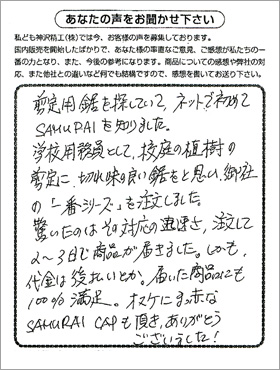 あなたの声をお聞かせ下さい
私ども神沢精工(株)では今、お客様の声を募集しております。
国内販売を開始したばかりで、あなた様の率直なご意見、ご感想が私たちの一
番の力となり、また、今後の参考になります。商品についての感想や弊社の対
応、また他社との違いなど何でも結構ですので、感想を書いてお送り下さい。
剪定用鋸を探していて、ネットで初めて
SAMURAIを知りました。
学校用務員として、校庭の植樹の
剪定に、切れ味の良い鋸をと思い、御社
の「一番シリーズ」を注文しました。
驚いたのはその対応の迅速さ、注文して
2〜3日で商品が届きました。しかも、
代金は後払いとか。届いた商品にも
100%満足。オマケにまっ赤な
SAMURAI CAPも頂き、ありがとう
ございました!